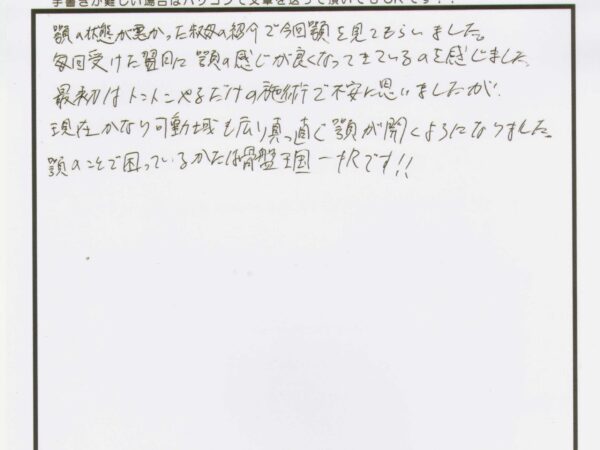 手書きが難しい場合はパソコンで文章を送って頂いてもOKです！！
顎の状態が悪かった叔母の紹介で今回顎を見てもらいました。
毎回受けた翌日に顎の感じが良くなってきているのを感じました
最初はトントンやるだけの施術で不安に思いましたが、
現在かなり可動域も広り真っ直ぐ顎が開くようになりました。
顎のことで困っているかたは骨盤王国一択です!!